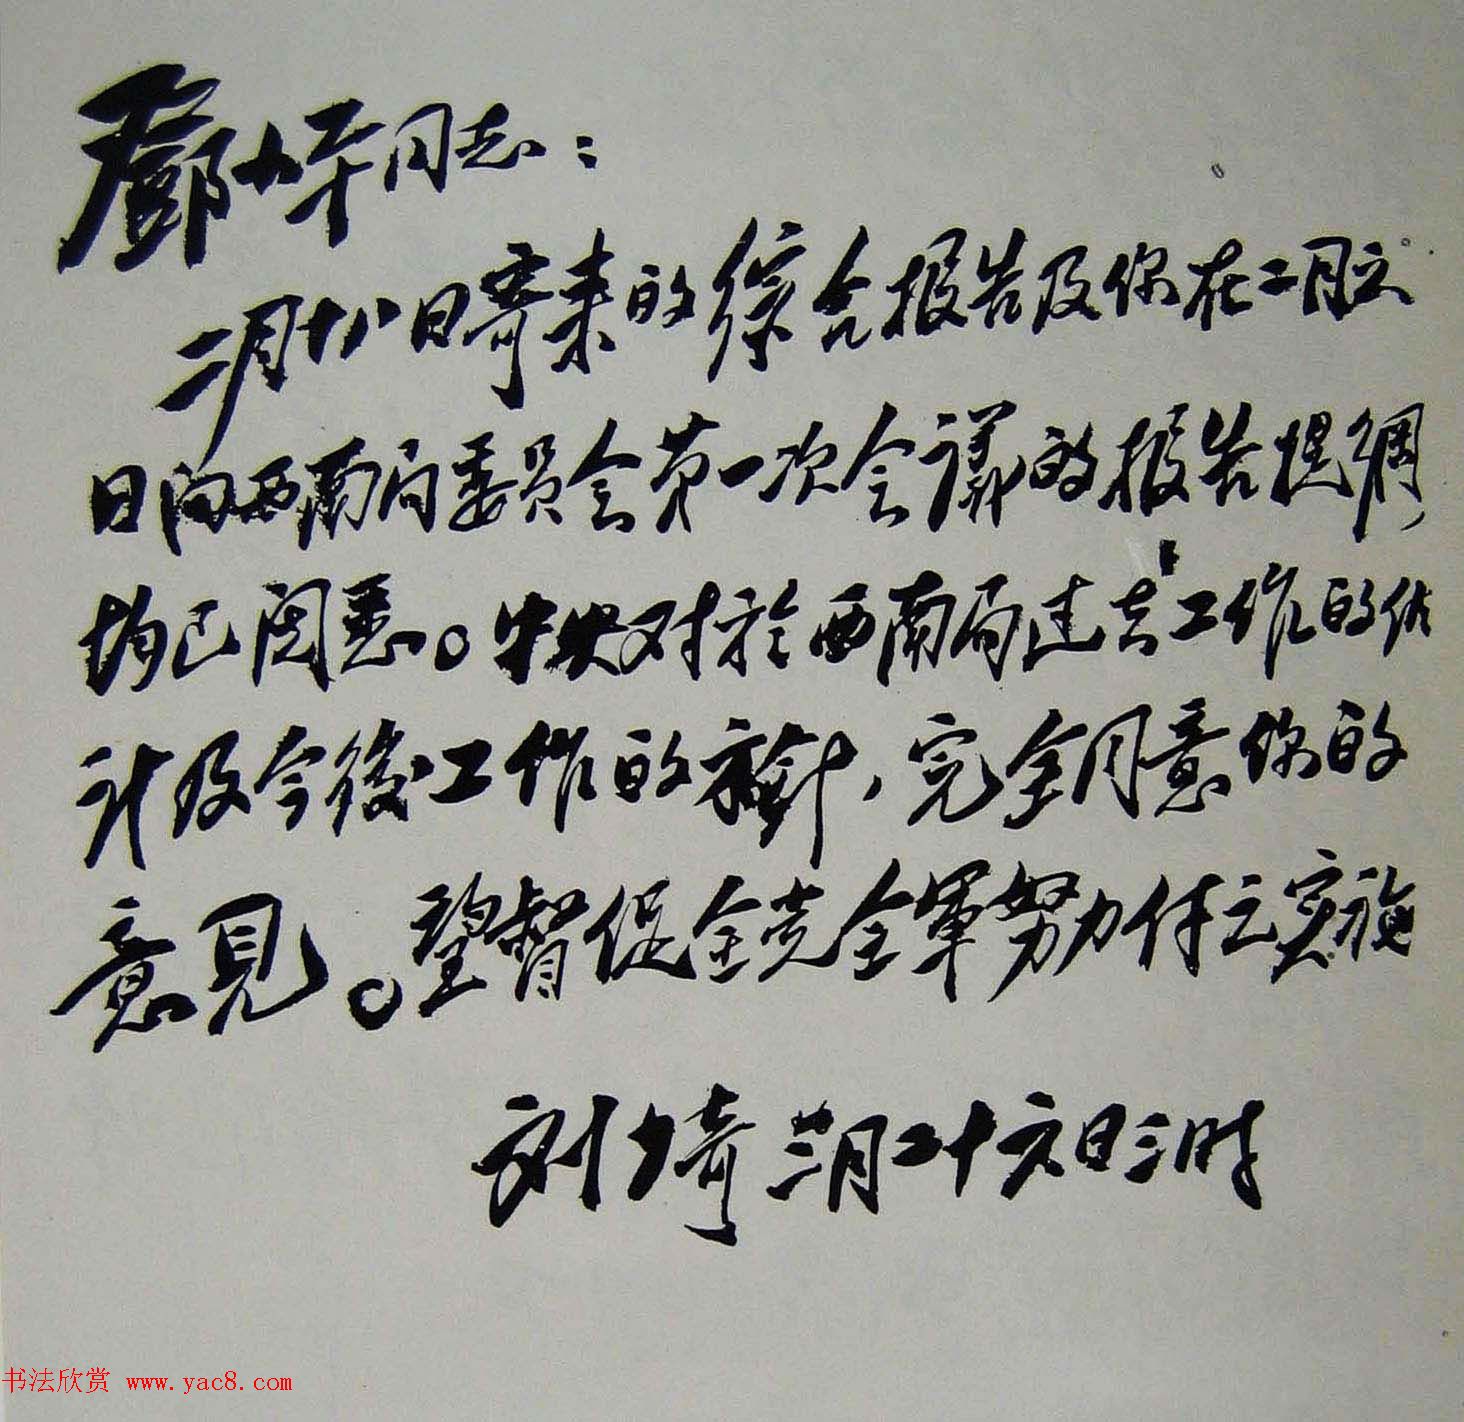 鄧小平同志：
二月十八日寄来的綜合报告及你在二月六
日向西南局委員会第一次会議的报告提綱
均已閱悉。中央对於西南局过去工作的估
计及今後工作的方針，完全同意你的
意見。望督促全党全軍努力付之实施
刘少奇 三月二十六日三时
书法欣赏 www.yac8.com